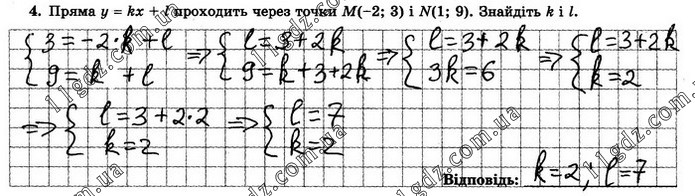 4. Пряма y = kx + l проходить через точки M(−2; 3) і N(1; 9). Знайдіть k і l.
{3 = -2·k + l      =>  {l = 3 + 2k      =>  {l = 3 + 2k  =>  {l = 3 + 2k
{9 = k + l             {9 = k + 3 + 2k      {3k = 6          {k = 2
=> {l = 3 + 2·2  =>  {l = 7
   {k = 2            {k = 2
Відповідь: k = 2; l = 7
11gdz.com.ua